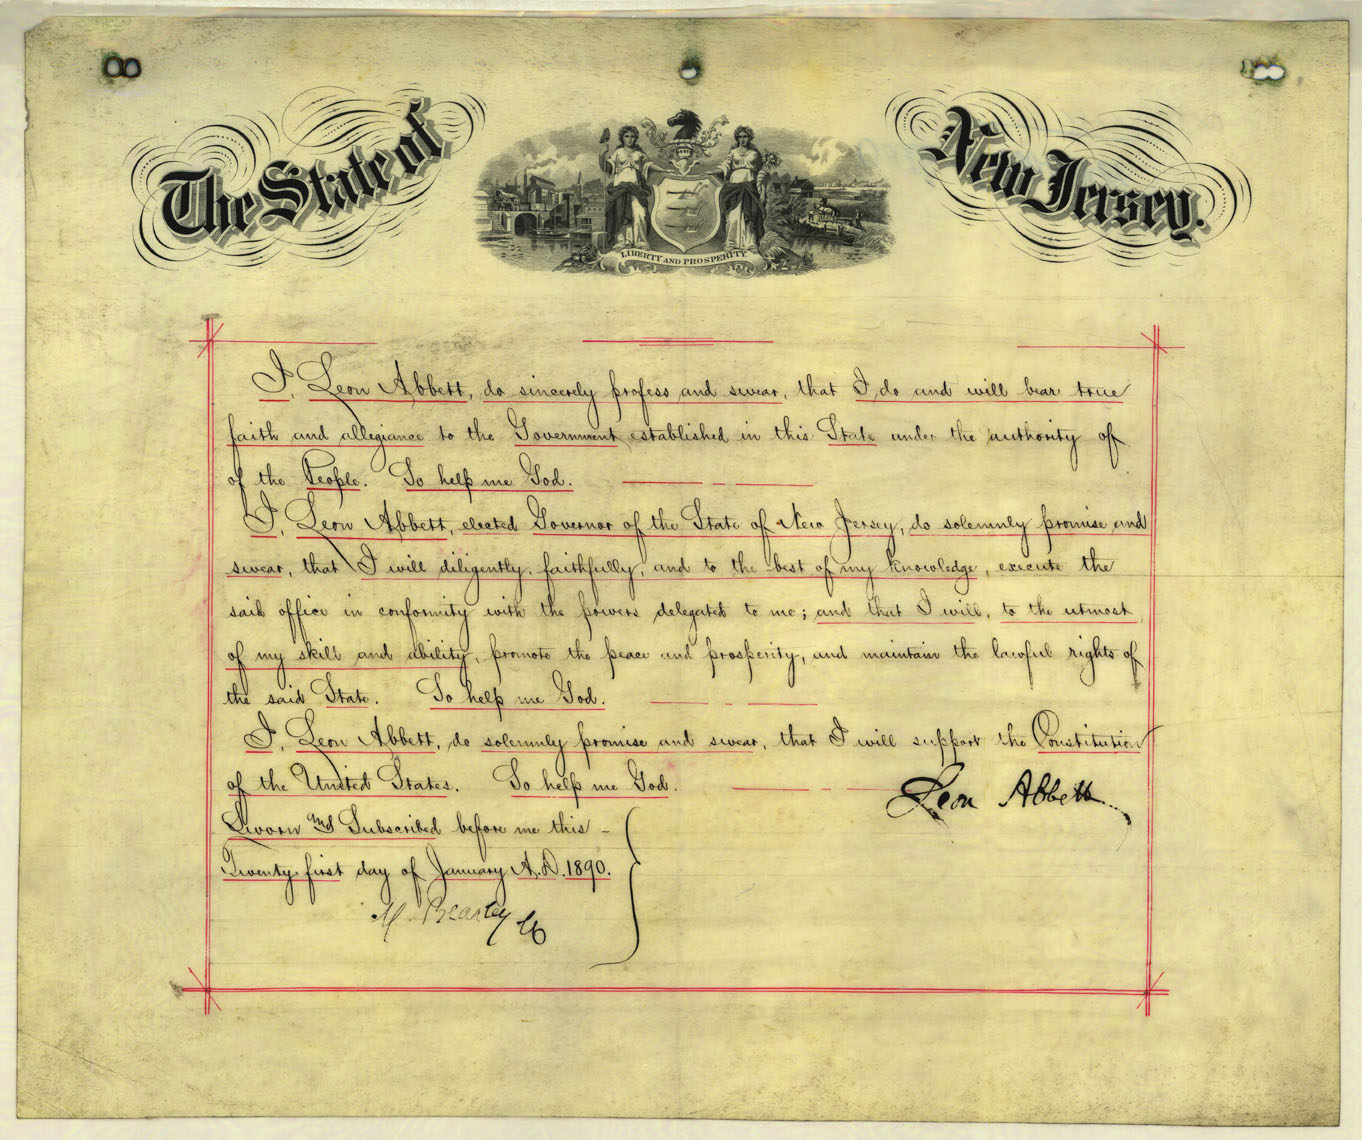 The State of New Jersey.
LIBERTY AND PROSPERITY
I, Leon Abbett, do sincerely profess and swear, that I do and will bear true
faith and allegiance to the Government established in this State under the authority of
of the People. So help me God.
I, Leon Abbett, elected Governor of the State of New Jersey, do solemnly promise and
swear, that I will diligently, faithfully, and to the best of my knowledge, execute the
said office in conformity with the powers delegated to me; and that I will, to the utmost
of my skill and ability, promote the peace and prosperity, and maintain the lawful rights of
the said State. So help me God.
I, Leon Abbett, do solemnly promise and swear, that I will support the Constitution
of the United States. So help me God.
Leon Abbett
Sworn and Subscribed before me this -
Twenty first day of January A.D. 1890.
M. Beasley